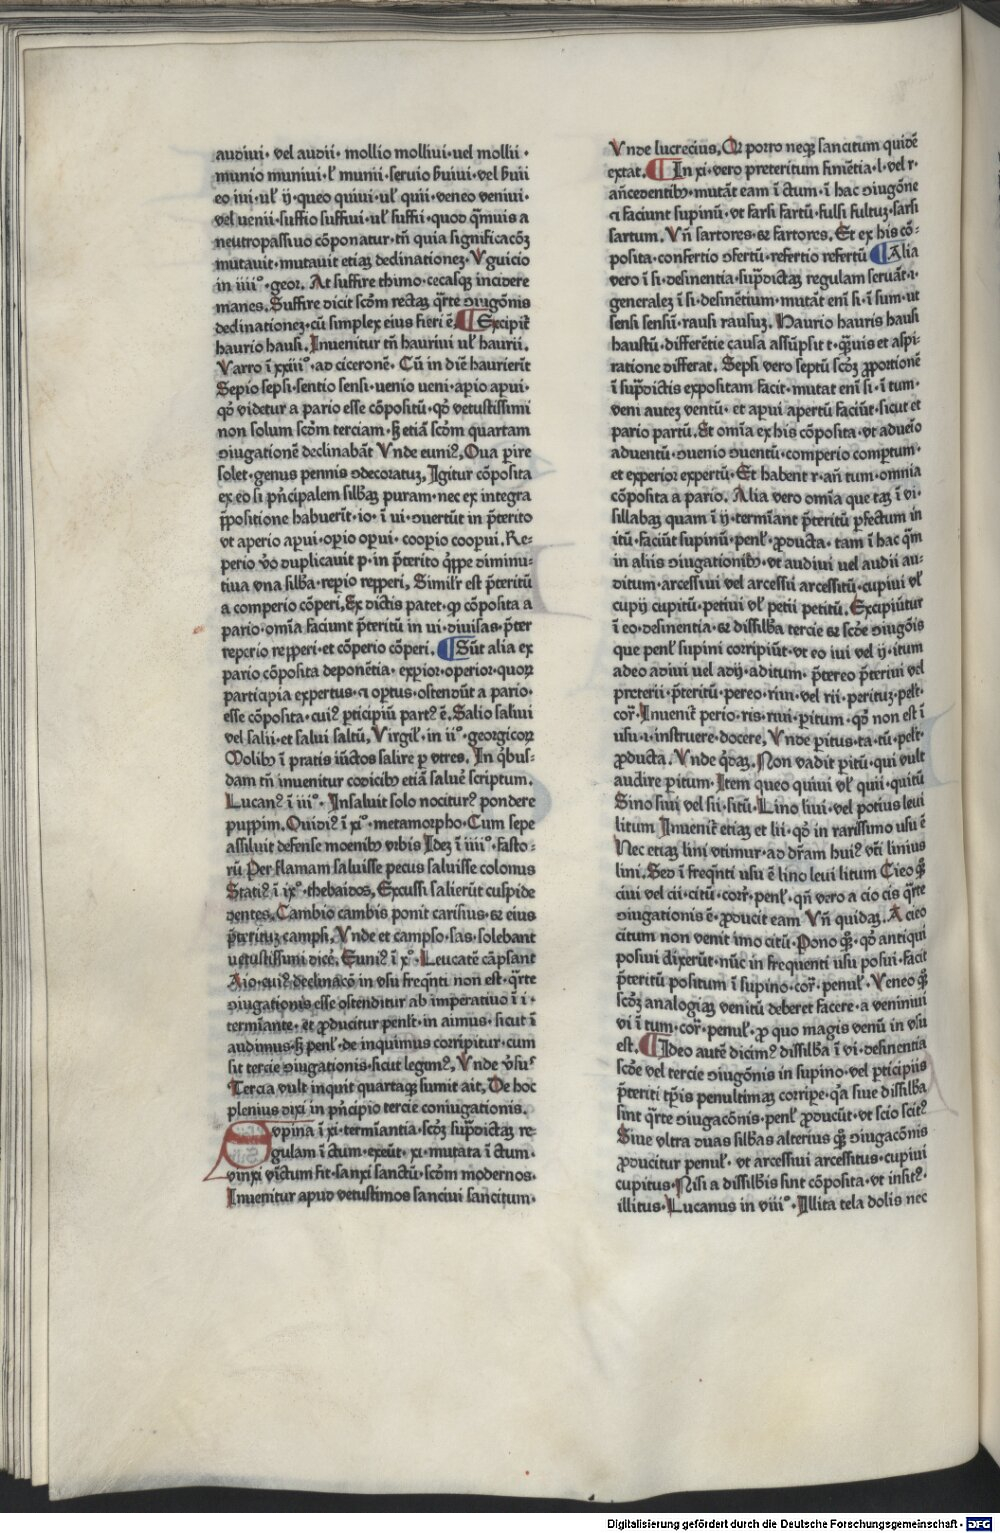 audiui· vel audii· mollio molliui·uel mollii·
munio muniui·ł munii·seruio ẜuiui·vel ẜuii
eo iui·uł ij·queo quiui·uł quii·veneo veniui·
vel uenii·suffio suffiui·uł suffii·quod q̄muis a
neutropassiuo cōponatur·tn̄ quia significacōꝫ
mutauit·mutauit etiaꝫ declinationeꝫ·Vguicio
in iiii°·geor. At suffire thimo·cecasqꝫ incidere
manes. Suffire dicit scōm rectaꝫ q̄rte ɔiugōnis
declinationeꝫ·cū simplex eius fieri ē. ¶Excipit̄
haurio hausi. Inuenitur tn̄ hauriui uł haurii.
Varro ī xxiii°·ad ciceronē· Cū in diē haurierīt
Sepio sepsi·sentio sensi·uenio ueni·apio apui·
qō videtur a pario esse cōpositū·qō vetustissimi
non solum scōm terciam·ꝫ etiā scōm quartam
ɔiugationē declinabāt Vnde euniꝰ. Oua pire
solet·genus pennis ɔdecoratuꝫ. Igitur cōposita
ex eo si pn̄cipalem silbaꝫ puram·nec ex integra
p̄positione habuerīt·io·ī ui·ɔuertūt in p̄terito
vt aperio apui·opio opui·coopio coopui. Re-
perio v̄o duplicauit p·in p̄terito q̄ppe diminu-
tiua vna silba·repio repperi. Simil'r est p̄teritū
a comperio cōperi. Ex dictis patet·ꝙ cōposita a
pario·omīa faciunt p̄teritū in ui·diuisas·p̄ter
reperio repperi·et cōperio cōperi. ¶Sūt alia ex
pario cōposita deponētia·expior·operior·quoꝝ
participia expertus·⁊ optus·ostendūt a pario·
esse cōposita·cuiꝰ pticipiū partꝰ ē. Salio saliui
vel salii·et salui saltū. Virgił·in ii°·georgicoꝝ
Molibꝫ ī pratis iūctos salire p vtres. In q̄bus-
dam tn̄ inuenitur codicibꝫ etiā saluē scriptum.
Lucanꝰ ī iii°·Insaluit solo nociturꝰ pondere
puppim. Ouidiꝰ ī xi°·metamorpho·Cum sepe
assiluit defense moenibꝫ vrbis Ideꝫ ī iiii°·fasto-
rū Per flamam saluisse pecus saluisse colonus
Statiꝰ ī ix°·thebaidos. Excussi salierūt cuspide
dentes. Cambio cambis ponit carisius·⁊ eius
p̄terituꝫ campsi. Vnde et campso·sas·solebant
uetustissimi dicē. Euniꝰ ī x°·Leucatē cāpsant
Aio·cuiꝰ declinacō in vsu freqn̄ti non est·q̄rte
ɔiugationis esse ostenditur ab imperatiuo ī i·
termīante·et ꝓducitur penłt·in aimus·sicut ī
audimus·ꝫ penł·de inquimus corripitur·cum
sit tercie ɔiugationis·sicut legimꝰ. Vnde v̄sus
Tercia vult inquit quartaqꝫ sumit ait. De hoc
plenius dixi in pn̄cipio tercie coniugationis.
Supina ī xi·termīantia·scōꝫ sup̄dictaꝫ re-
gulam ī ctum·exeūt·xi·mutata ī ctum·
vinxi vīctum fit·sanxi sanctū·scōm modernos·
Inuenitur apud vetustimos sanciui sancitum·
Vnde lucrecius. Qꝛ porro neqꝫ sancitum quidē
extat. ¶In xi·vero preteritum finiētia·l·vel r·
an̄cedentibꝫ·mutāt eam ī ctum·ī hac ɔiugōne
⁊ faciunt supinū·vt farsi fartū·fulsi fultuꝫ·sarsi
sartum. Vn̄ sartores·⁊ fartores. Et ex his cō-
posita·confertio ɔfertū·refertio refertū ¶Alia
vero ī si·desinentia·sup̄dictaꝫ regulam seruāt·i·
generaleꝫ ī si·desinētium·mutāt enī si·ī sum·ut
sensi sensū·rausi rausuꝫ. Haurio hauris hausi
haustū·differētie causa assūpsit t·q̄uis et aspi-
ratione differat. Sepsi vero septū scōꝫ ꝓportionē
ī sup̄dictis expositam facit·mutat enī si·ī tum·
veni auteꝫ ventū·et apui apertū faciūt·sicut et
pario partū. Et omīa ex his cōposita·vt adueio
aduentū·ɔuenio ɔuentū·comperio comptum·
et experior expertū·Et habent r·an̄ tum·omnia
cōposita a pario. Alia vero omīa que taꝫ ī vi·
sillabaꝫ quam ī ij·termīant p̄teritū pfectum in
itū·faciūt supinū·penł·ꝓducta·tam ī hac q̄m
in aliis ɔiugationibꝫ·vt audiui uel audii au-
ditum·arcessiui vel arcessii arcessitū·cupiui vł
cupij cupitū·petiui vł petii petitū. Excipiūtur
ī eo·desinentia·⁊ dissilba tercie ⁊ scōe ɔiugōis
que penł supini corripiūt·vt eo iui vel ij·itum
adeo adiui uel adij·aditum·p̄tereo p̄teriui vel
preterii·p̄teritū·pereo·riui·vel rii·perituꝫ·pełt·
cor̄. Inuenit̄ perio·ris·riui·pitum·qō non est ī
usu·ɔ·instruere·docere. Vnde pitus·ta·tū·pełt·
ꝓducta. Vnde q̄daꝫ. Non vadit pitū·qui vult
audire pitum·Item queo quiui vł quii·quitū
Sino siui vel sii·sitū·Lino liui·vel potius leui
litum Inuenit̄ etiaꝫ et lii·qō in rarissimo usu ē
Nec etiaꝫ lini vtimur·ad dr̄am huiꝰ vti linius
lini. Sed ī freqn̄ti usu ē lino leui litum Cieo qꝫ
ciui vel cii·citū·corr̄·penł·qn̄ vero a cio cis q̄rte
ɔiugationis ē·ꝓducit eam Vn̄ quidaꝫ. A cieo
citum non venit imo citū·Pono qꝫ·qō antiqui
posiui dixerūt·nūc in frequenti usu posui·facit
p̄teritū positum ī supino·cor̄·penuł·Veneo qꝫ
scōꝫ analogiaꝫ venitū deberet facere·a veniniui
vi ī tum·cor̄·penuł·ꝓ quo magis venū in vsu
est. ¶Ideo autē dicimꝰ dissilba ī vi·desinentia
scōe vel tercie ɔiugōnis in supino·vel pticipiis
p̄teriti tp̄is penultimaꝫ corripe·q̄a siue dissilba
sint q̄rte ɔiugacōnis·penł ꝓducūt·vt scio scitꝰ
Siue vltra duas silbas alterius qꝫ ɔiugacōnis
ꝓducitur penuł·vt arcessiui arcessitus·cupiui
cupitus·Nisi a dissilbis sint cōposita·vt insitꝰ·
illitus·Lucanus in viii°·Illita tela dolis nec
Digitalisierung gefördert durch die Deutsche Forschungsgemeinschaft - DFG